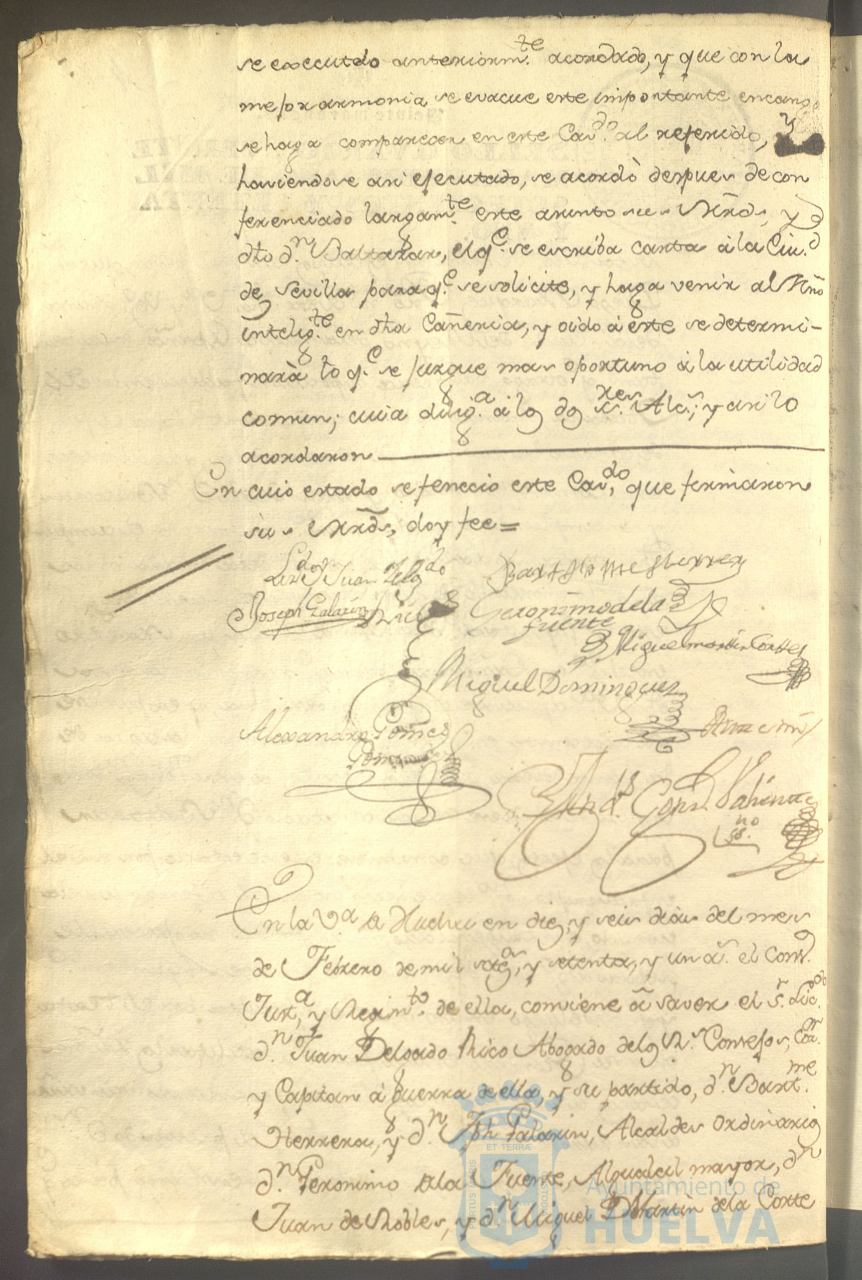 se executado anteriorm.te acordado, y que con la
mejor armonia se evacue este importante encargo
se haga comparecer en este Cav.do al referido, y
haviendose asi ejecutado, se acordò despues de con
ferenciado largam.te este asunto sus Mrds, y
dho d.n Baltazar, el q.e se escriba carta à la Ciu.d
de Sevilla para q.e se solicite, y haga venir al Mro
intelig.te en dha Cañeria, y oido à este se determi-
narà lo q.e se jusgue mas oportuno à la utilidad
comun; cuia dilig.a à los dos Alc.s; y asi lo
acordaron
En cuio estado se fenecio este Cav.do, que firmaron
sus Mrds, doy fee =
Juan Delg.do Rico
Barth.me Herrera
Joseph Galarin
Geronimo de la
fuente
Miguel martin Cortes
Miguel Dominguez
Alexandro Gomes
Valiente
ss.no
En la V.a de Huelva en diez, y seis dias del mes
de Febrero de mil set.s, y setenta, y un a.s el Conz.
Just.a, y Regim.to de ella, conviene à saver el s.r Lic.do
d.n Juan Delgado Rico Abogado de los R.s Consejos, Cor.r
y Capitan à guerra de ella, y su partido, d.n Bart.me
Herrera, y d.n Jph Galarin, Alcaldes ordinarios
d.n Geronimo de la Fuente, Alguacil mayor, d.n
Juan de Robles, y d.n Miguel Martin de la Corte
ET TERRÆ
Ayuntamiento de
HUELVA